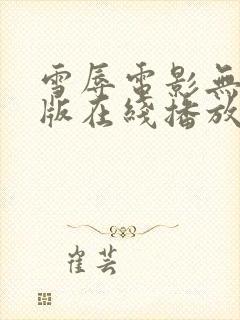 雪辱電影無
版在綫播放
崔芸